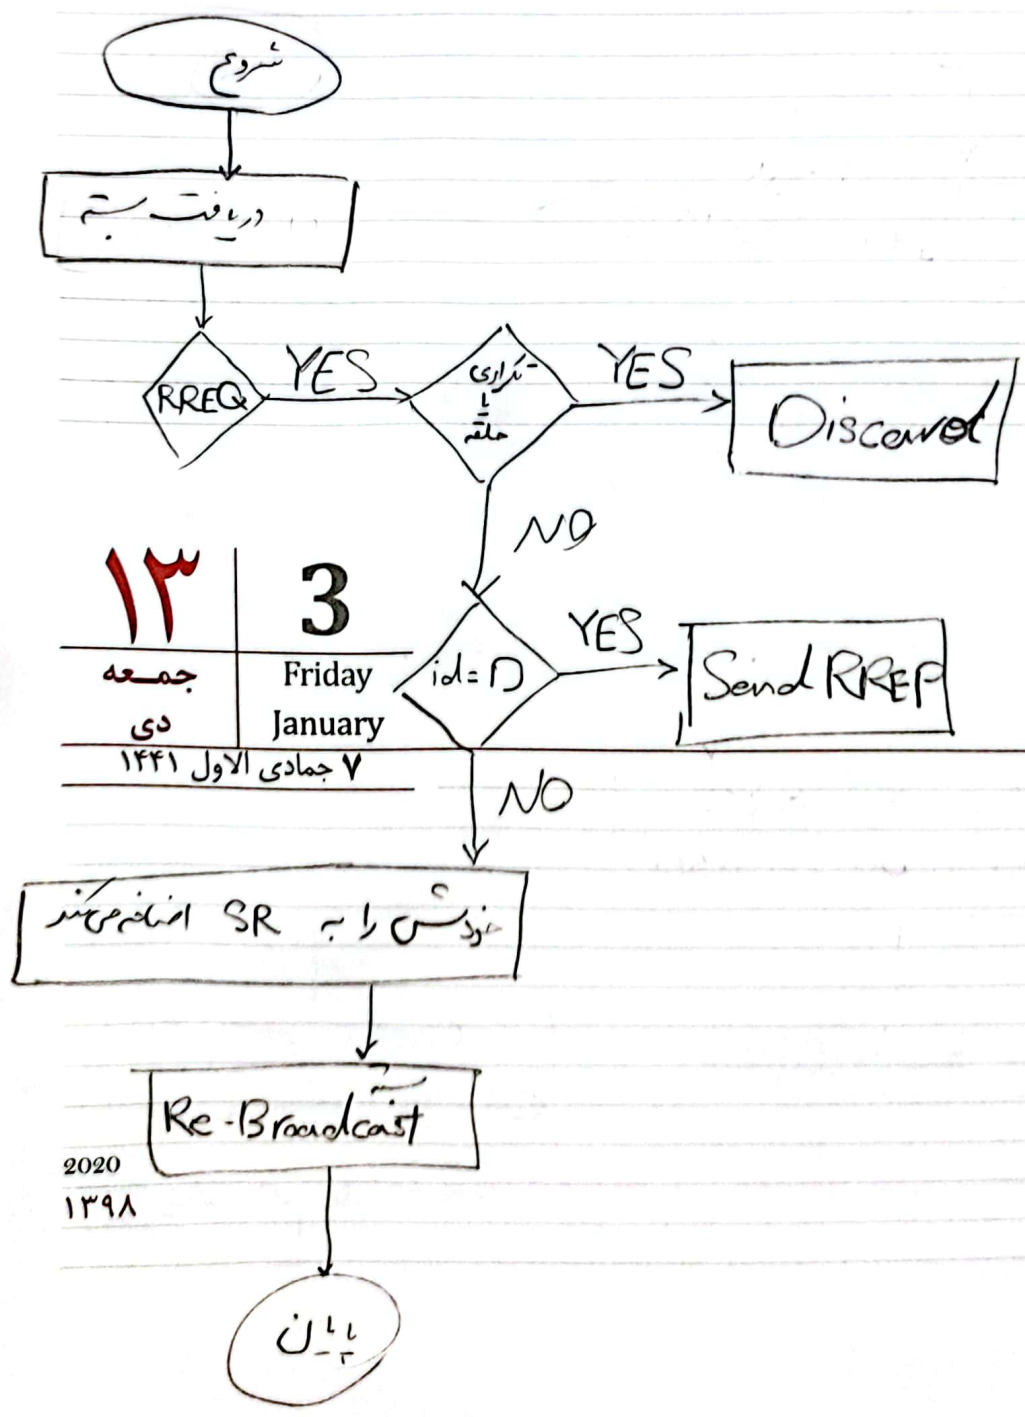 شروع
دریافت بسته
RREQ
YES
تکراری
یا
حلقه
YES
Discard
NO
۱۳
3
جمعه
Friday
دی
January
۷ جمادی الاول ۱۴۴۱
id=D
YES
Send RREP
NO
خودش را به SR اضافه می‌کند
بسته
Re-Broadcast
2020
۱۳۹۸
پایان